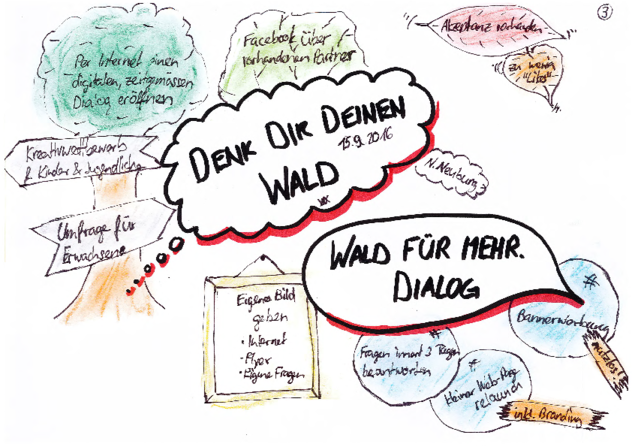 3
Per Internet einen
digitalen, zeitgemässen
Dialog eröffnen
Facebook über
vorhandenen Partner
Akzeptanz vorhanden
zu wenig
"Likes"
Kreativwettbewerb
f. Kinder & Jugendliche
Umfrage für
Erwachsene
DENK DIR DEINEN
15.9.2016
WALD
N. Neuburg
WALD FÜR MEHR.
DIALOG
Eigenes Bild
geben
• Internet
• Flyer
• Eigene Fragen
#
Bannerwerbung
#
Fragen innert 3 Tagen
beantworten
#
kleiner Web-Page
relaunch
inkl. Branding